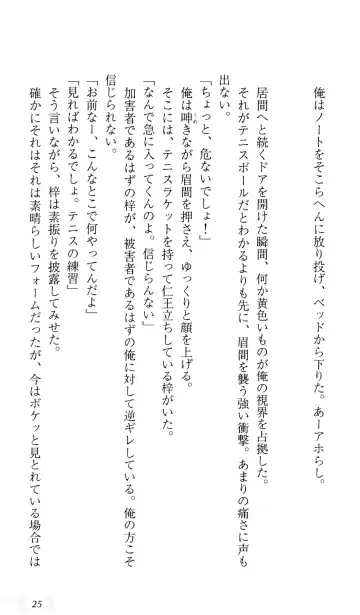 俺はノートをそこらへんに放り投げ、ベッドから下りた。あーアホらし。
居間へと続くドアを開けた瞬間、何か黄色いものが俺の視界を占拠した。
それがテニスボールだとわかるよりも先に、眉間を襲う強い衝撃。あまりの痛さに声も
出ない。
「ちょっと、危ないでしょ！」
俺は呻きながら眉間を押さえ、ゆっくりと顔を上げる。
そこには、テニスラケットを持って仁王立ちしている梓がいた。
「なんで急に入ってくんのよ。信じらんない」
加害者であるはずの梓が、被害者であるはずの俺に対して逆ギレしている。俺の方こそ
信じられない。
「お前なー、こんなとこで何やってんだよ」
「見ればわかるでしょ。テニスの練習」
そう言いながら、梓は素振りを披露してみせた。
確かにそれはそれは素晴らしいフォームだったが、今はボケッと見とれている場合では
25